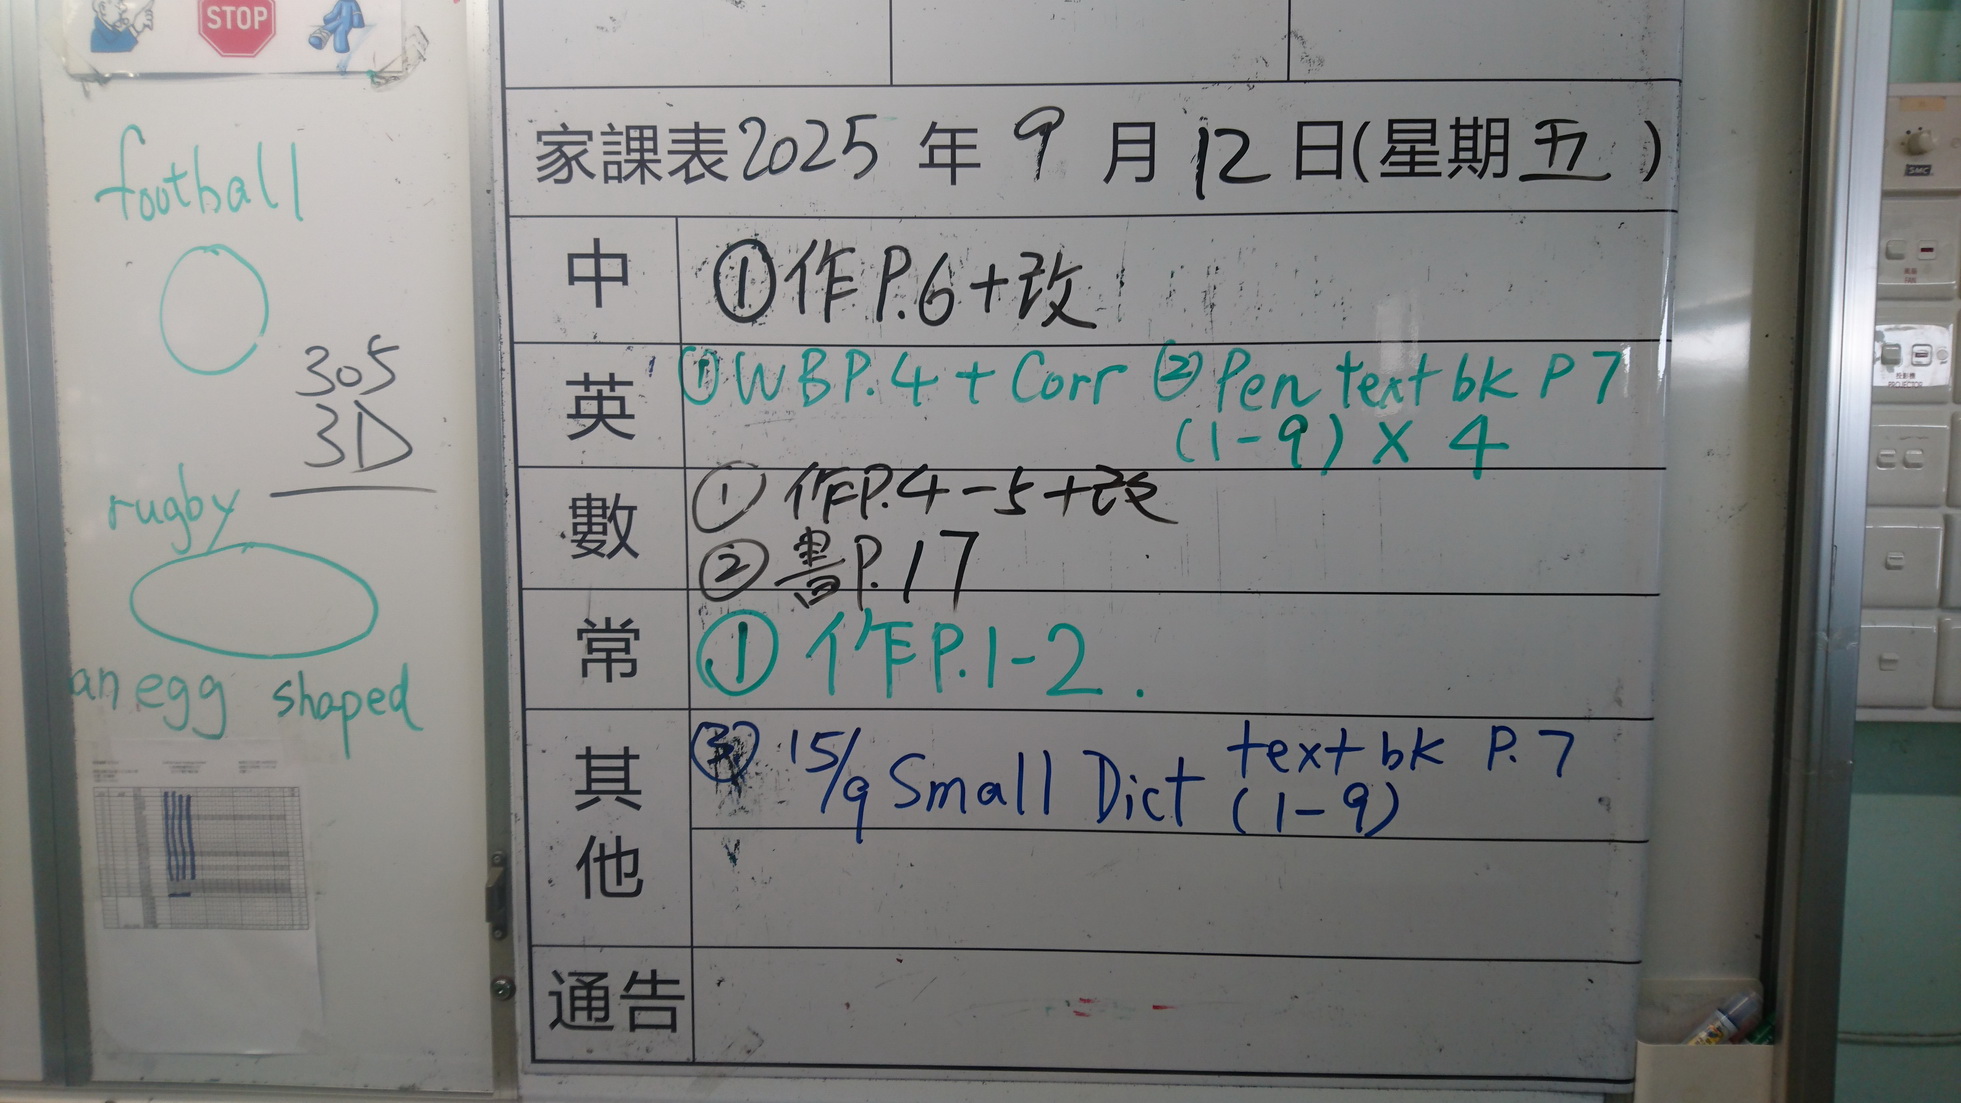 STOP
football
305
3D
rugby
an egg shaped
家課表2025年9月12日(星期五)
中 ①作P.6+改
英 ①WB P.4 + Corr ②Pen text bk P 7
(1-9) X 4
數 ①作P.4-5+改
②書P.17
常 ①作P.1-2.
其他 ③ 15/9 Small Dict text bk P.7
(1-9)
通告